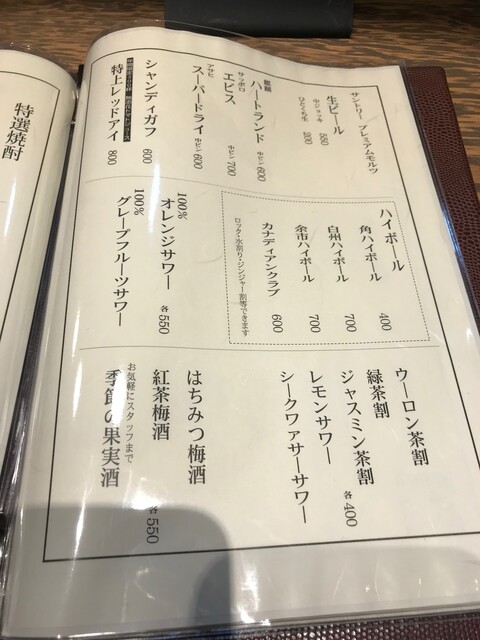 サントリー プレミアムモルツ
生ビール
中ジョッキ 550
ひとくち生 200
麒麟
ハートランド 中ビン 600
サッポロ
ヱビス 中ビン 700
アサヒ
スーパードライ 中ビン 600
シャンディガフ 600
特上レッドアイ 800
ハイボール
角ハイボール 400
白州ハイボール 700
余市ハイボール 700
カナディアンクラブ 600
ロック・水割り・ジンジャー割等できます
100%
オレンジサワー 各550
100%
グレープフルーツサワー
ウーロン茶割
緑茶割
ジャスミン茶割 各400
レモンサワー
シークヮサーサワー
はちみつ梅酒
紅茶梅酒 各550
お気軽にスタッフまで
季節の果実酒
特選焼酎